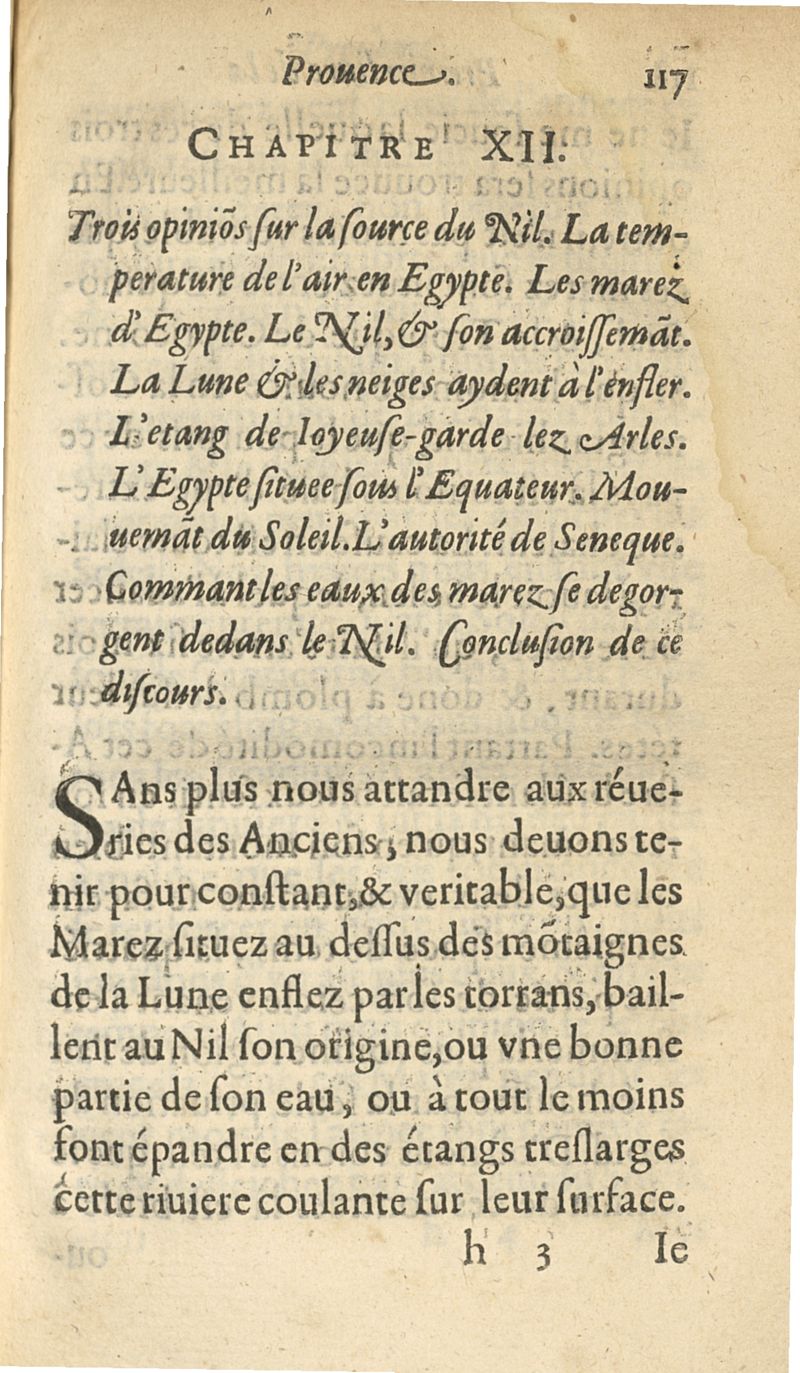 Prouence. 117
CHAPITRE XII.
Trois opiniōs ſur la ſource du Nil. La tem-
perature de l'air en Egypte. Les marez
d'Egypte. Le Nil, & ſon accroiſſemāt.
La Lune & les neiges aydent à l'enfler.
L'etang de Ioyeuſe-garde lez Arles.
L'Egypte ſituee ſous l'Equateur. Mou-
uemāt du Soleil. L'autorité de Seneque.
Commant les eaux des marez ſe degor-
gent dedans le Nil. Concluſion de ce
diſcours.
SAns plus nous attandre aux réue-
ries des Anciens, nous deuons te-
nir pour conſtant, & veritable, que les
Marez ſituez au deſſus des mōtaignes
de la Lune enflez par les torrans, bail-
lent au Nil ſon origine, ou vne bonne
partie de ſon eau, ou à tout le moins
font épandre en des étangs treſlarges
cette riuiere coulante ſur leur ſurface.
h 3 Ie